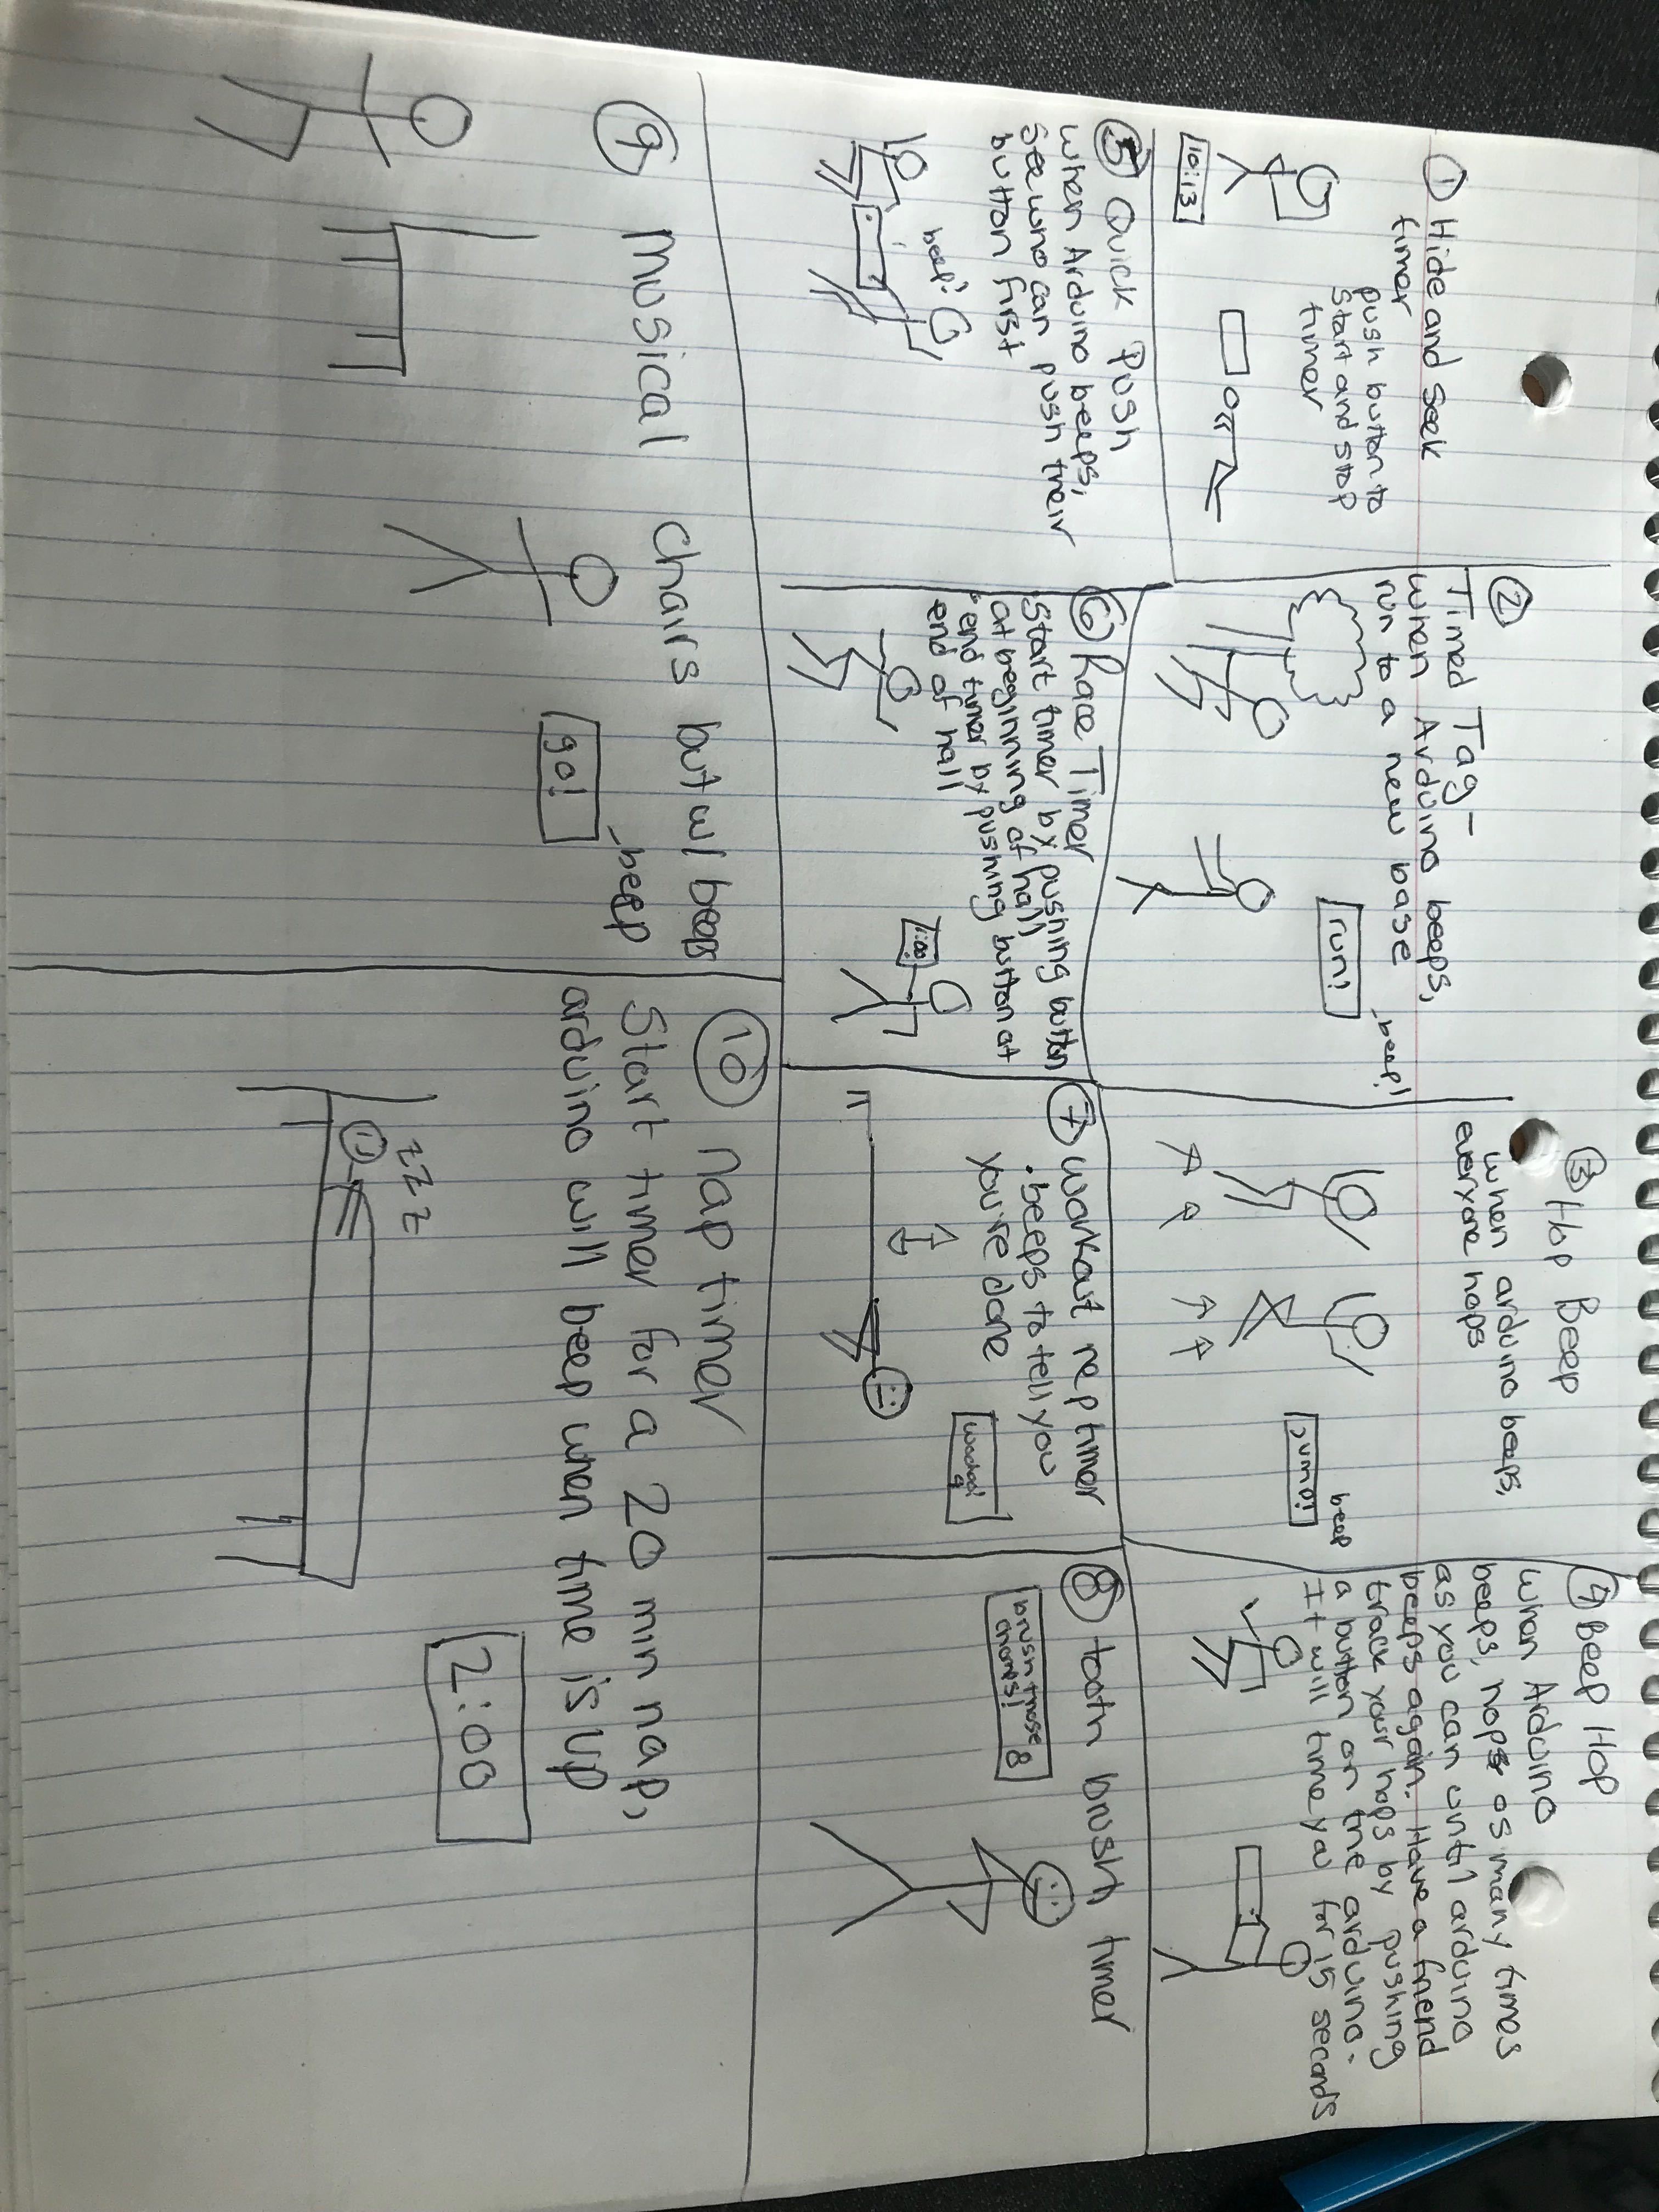 ① Hide and Seek
timer
push button to
Start and stop
timer
10:13
②
Timed Tag-
When Arduino beeps,
run to a new base
run!
-beep!
③ Hop Beep
when arduino beeps,
everyone hops
beep
jump!
④ Beep Hop
When Arduino
beeps, hops as many times
as you can until arduino
beeps again. Have a friend
track your hops by pushing
a button on the arduino.
It will time you for 15 seconds
⑤ Quick Push
When Arduino beeps,
See who can push their
button first
beep!
⑥ Race Timer
Start timer by pushing button
at beginning of hall
end timer by pushing button at
end of hall
1:00
⑦ workout rep timer
• beeps to tell you
you're done
⑧ tooth brush timer
brush those
chomps!
8
⑨ Musical Chairs but w/ beeps
-beep
go!
⑩ Nap timer
Start timer for a 20 min nap,
arduino will beep when time is up
zzz
2:00